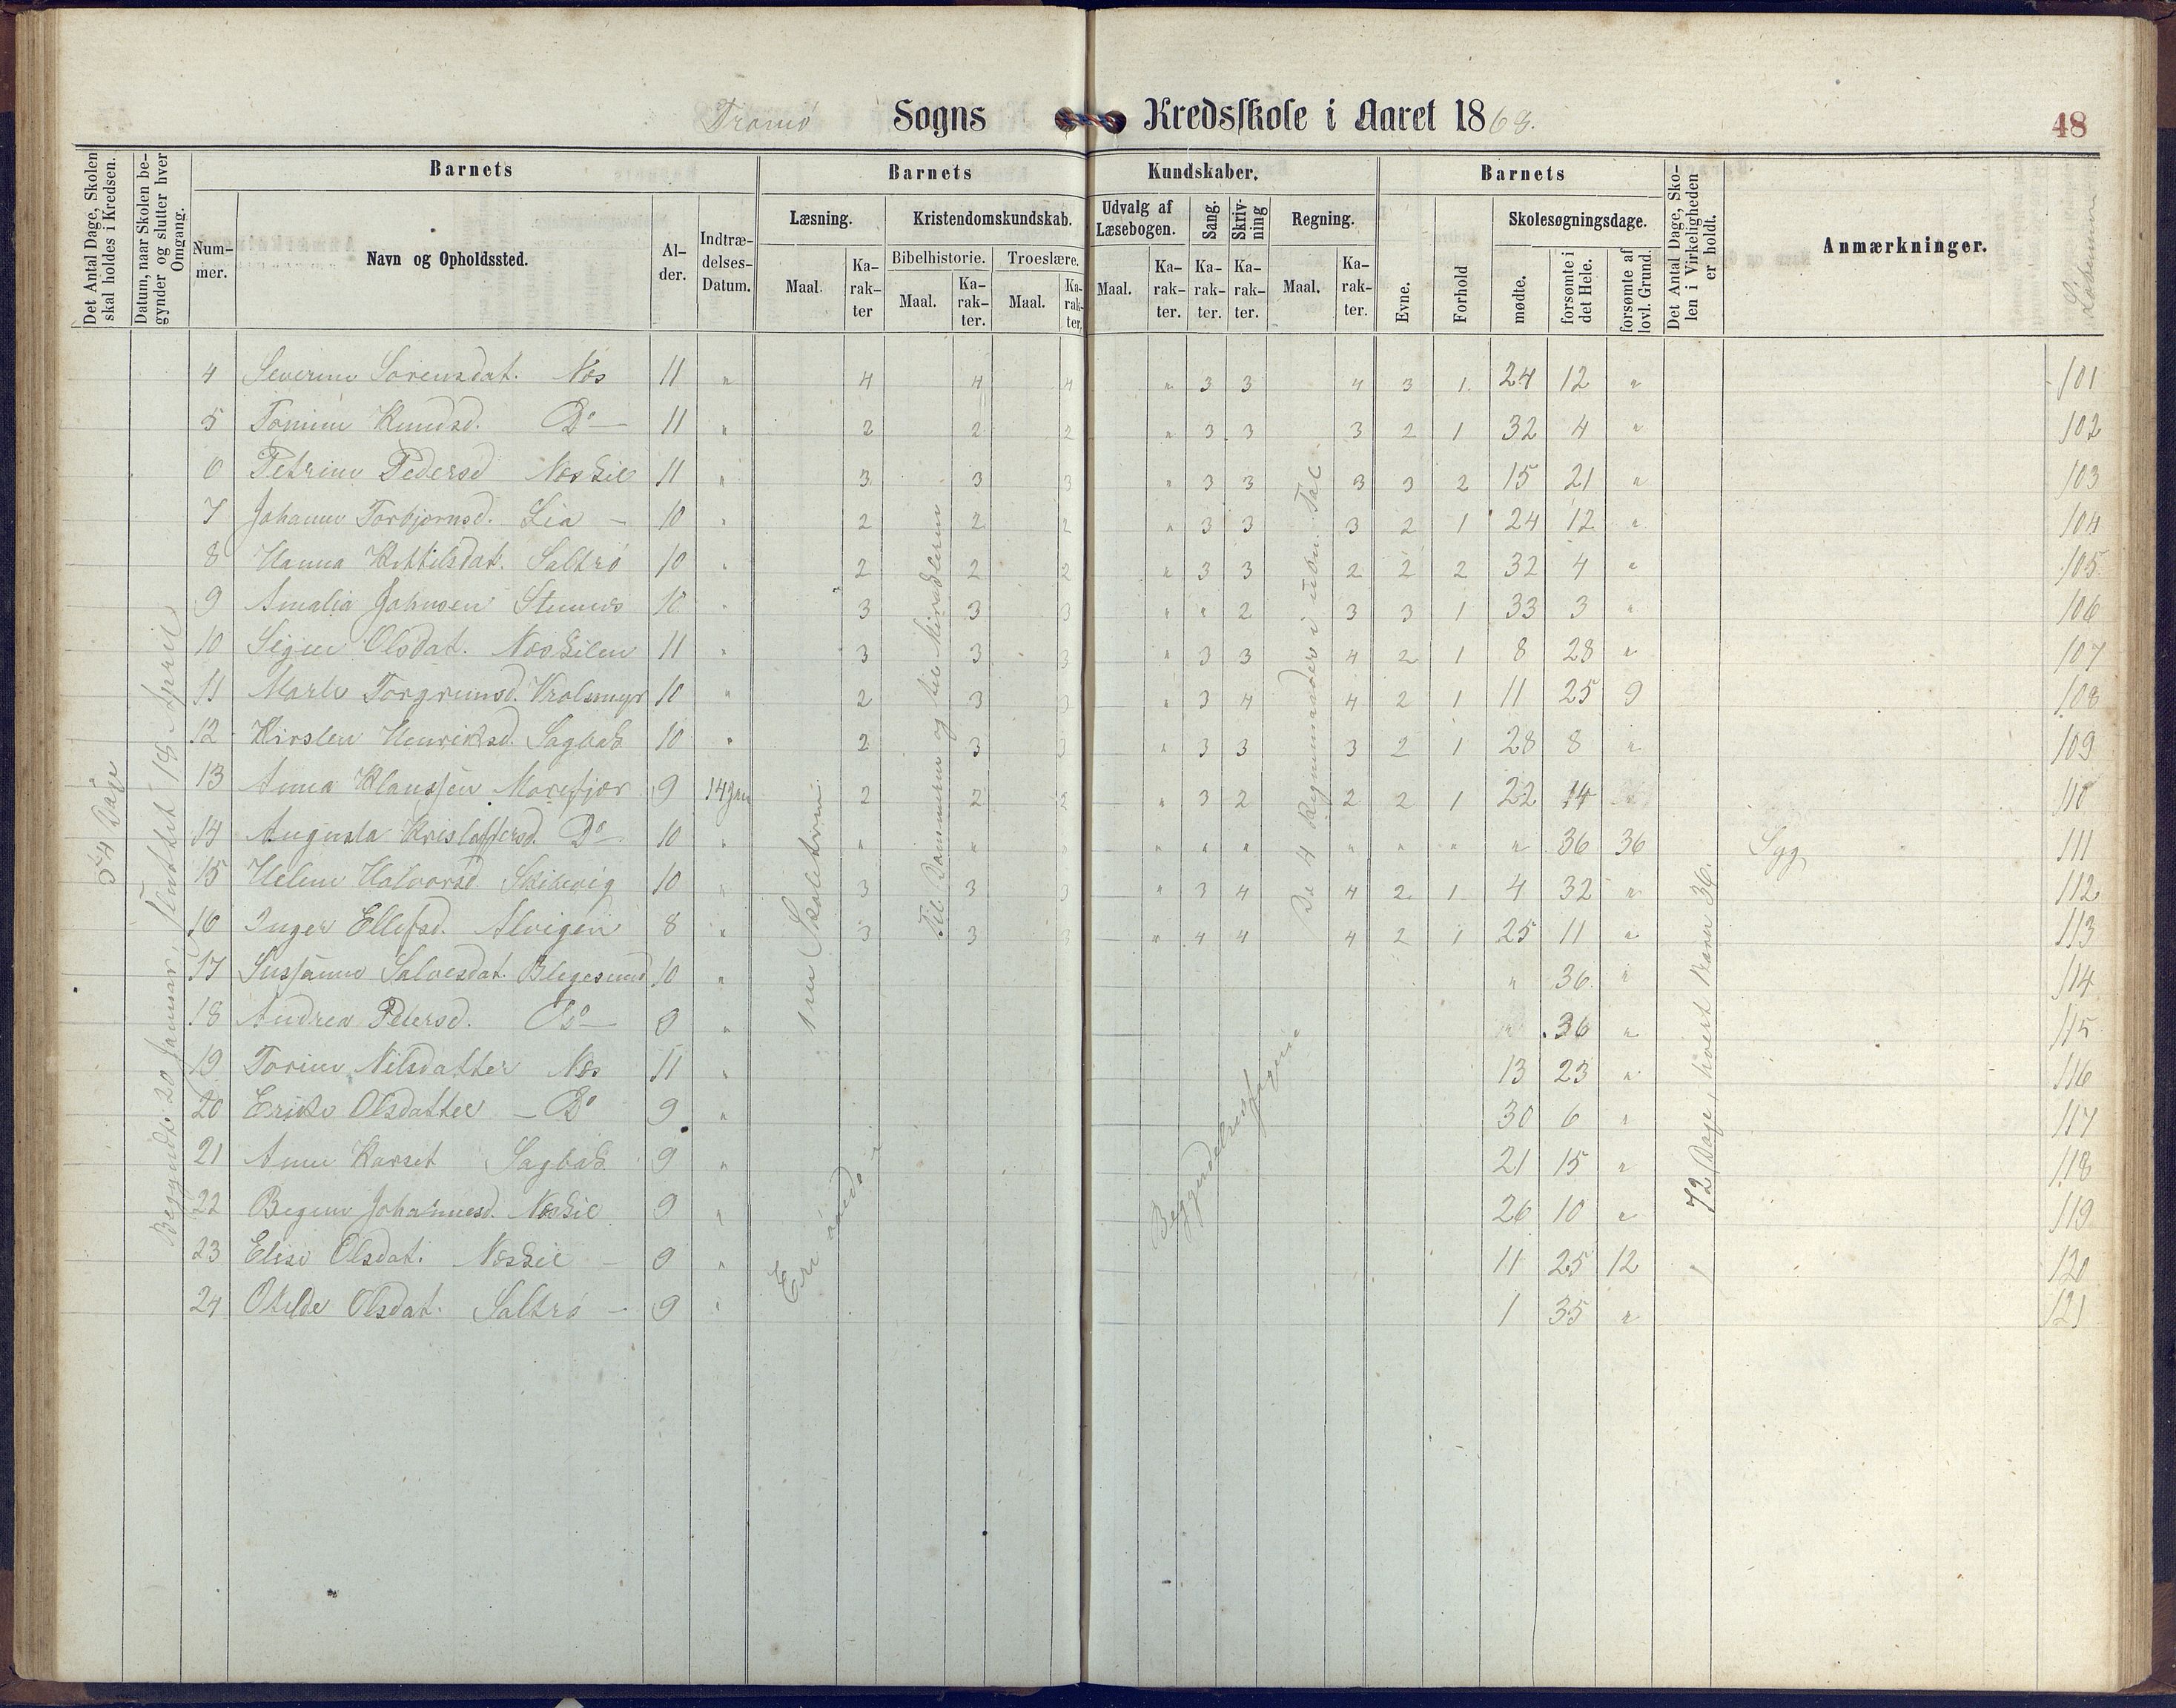 Tromø Sogns Kredsskole i Aaret 1868. 48
Det Antal Dage, Skolen skal holdes i Kredsen.
Datum, naar Skolen begynder og slutter hver Omgang.
Barnets
Nummer.
Navn og Opholdssted.
Alder.
Indtrædelses-Datum.
Barnets Kundskaber.
Læsning.
Maal. Karakter
Kristendomskundskab.
Bibelhistorie. Troeslære.
Maal. Karakter. Maal. Karakter.
Udvalg af Læsebogen.
Maal. Karakter.
Sang. Karakter.
Skrivning Karakter.
Regning.
Maal. Karakter.
Barnets
Evne. Forhold
Skolesøgningsdage.
mødte. forsømte i det Hele. forsømte af lovl. Grund.
Det Antal Dage, Skolen i Virkeligheden er holdt.
Anmærkninger.
Løbenum
54 Dage
Begyndte 20 Januar, sluttet 18 April
1ste Skoletrin
Til Rommerne og til Miraklerne
De 4 Regnemaader i uben. Tal
72 Dage, hvert Barn 36.
Begyndelsesfagene
4 Severine Sørensdat. Næs 11 " 4 4 4 " 3 3 4 3 1 24 12 " 101
5 Tomine Knudsd. Do 11 " 2 2 2 " 3 3 3 2 1 32 4 " 102
6 Petrine Pedersd Næskil 11 " 3 3 3 " 3 3 3 3 2 15 21 " 103
7 Johanne Torbjørnsd. Lia 10 " 2 2 2 " 3 3 3 2 1 24 12 " 104
8 Hanna Kittilsdat. Saltrø 10 " 2 2 2 " 3 3 2 2 2 32 4 " 105
9 Amalia Johnsen 10 " 3 3 3 " " 2 3 3 1 33 3 " 106
10 Signe Olsdat. Næskilen 11 " 3 3 3 " 3 3 4 2 1 8 28 " 107
11 Marte Torgrimsd. 10 " 2 3 3 " 3 4 4 2 1 11 25 9 108
12 Kirsten Henriksd. Sagbak 10 " 2 3 3 " 3 3 3 2 1 28 8 " 109
13 Anna Klaussen Morefjær 9 14 Jan 2 2 2 " 3 2 2 2 1 22 14 110
14 Augusta Kristoffersd. Do 10 " " " " " " " " " " " 36 36 Syg 111
15 Helene Halvorsd. Skilevig 10 " 3 3 3 " 3 4 4 2 1 4 32 " 112
16 Inger Ellefsd. Alvigen 8 " 3 3 3 " 4 4 4 2 1 25 11 " 113
17 Susanne Salvesdat. Blegesund 10 " " 36 " 114
18 Andrea Petersd. Do 9 " " 36 " 115
19 Torine Nilsdatter Næs 11 " 13 23 " 116
20 Erike Olsdatter Do 9 " 30 6 " 117
21 Anne Karset Sagbak 9 " 21 15 " 118
22 Johannesd. Næskil 9 " 26 10 " 119
23 Elise Olsdat. Næskil 9 " 11 25 12 120
24 Otelde Olsdat. Saltrø 9 " 1 35 " 121